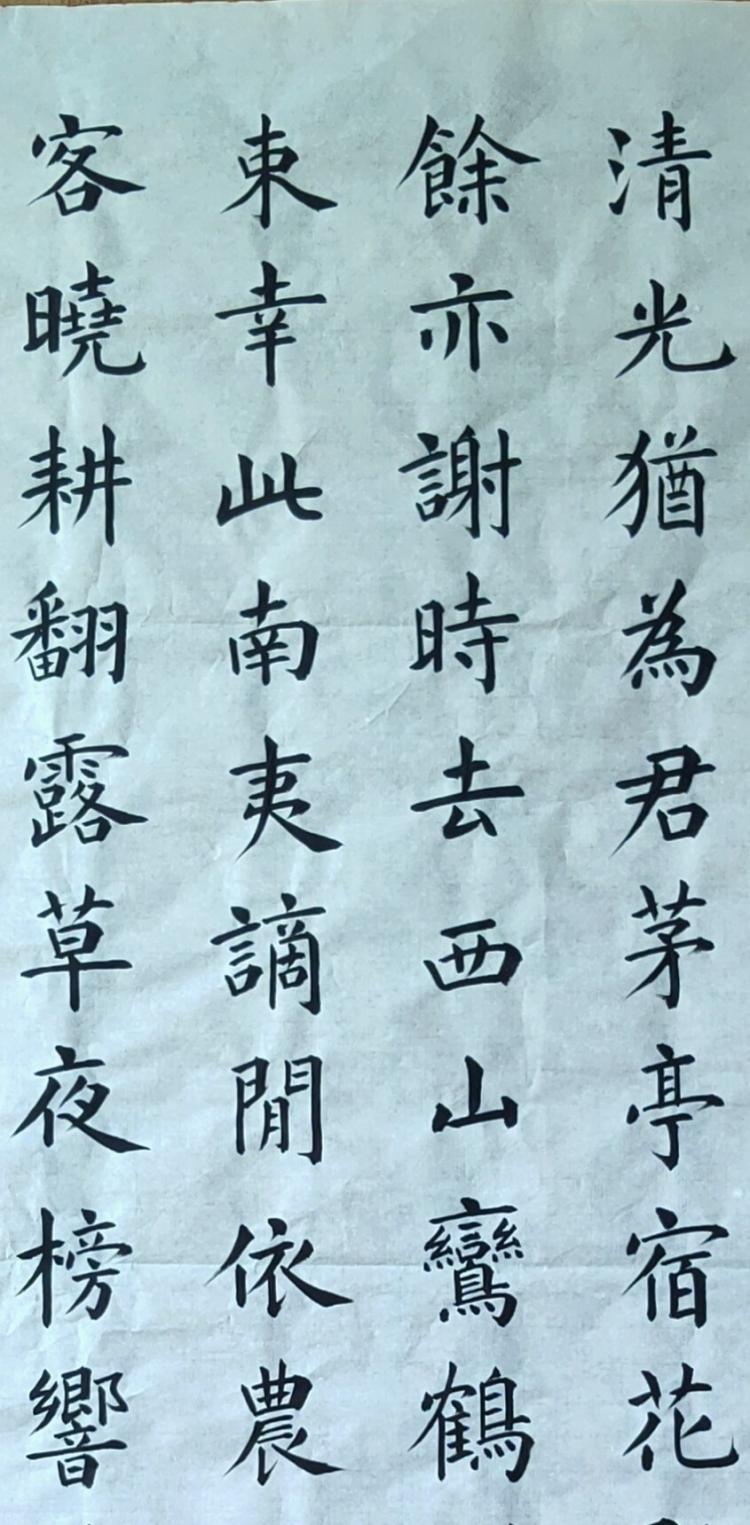 清光猶為君茅亭宿花
餘亦謝時去西山鸞鶴
束幸此南夷謫閒依農
客曉耕翻露草夜榜響